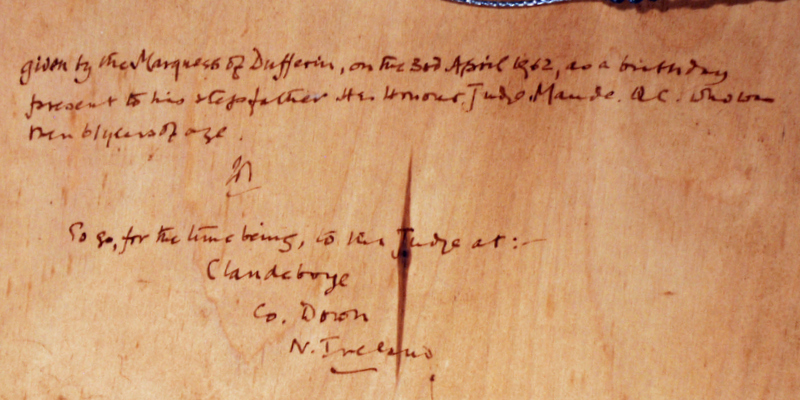 given by the Marquess of Dufferin, on the 3rd April 1962, as a birthday
present to his stepfather His Honour Judge Maude. QC. who was
then 61 years of age.
To go, for the time being, to the Judge at:-
Clandeboye
Co. Down
N. Ireland